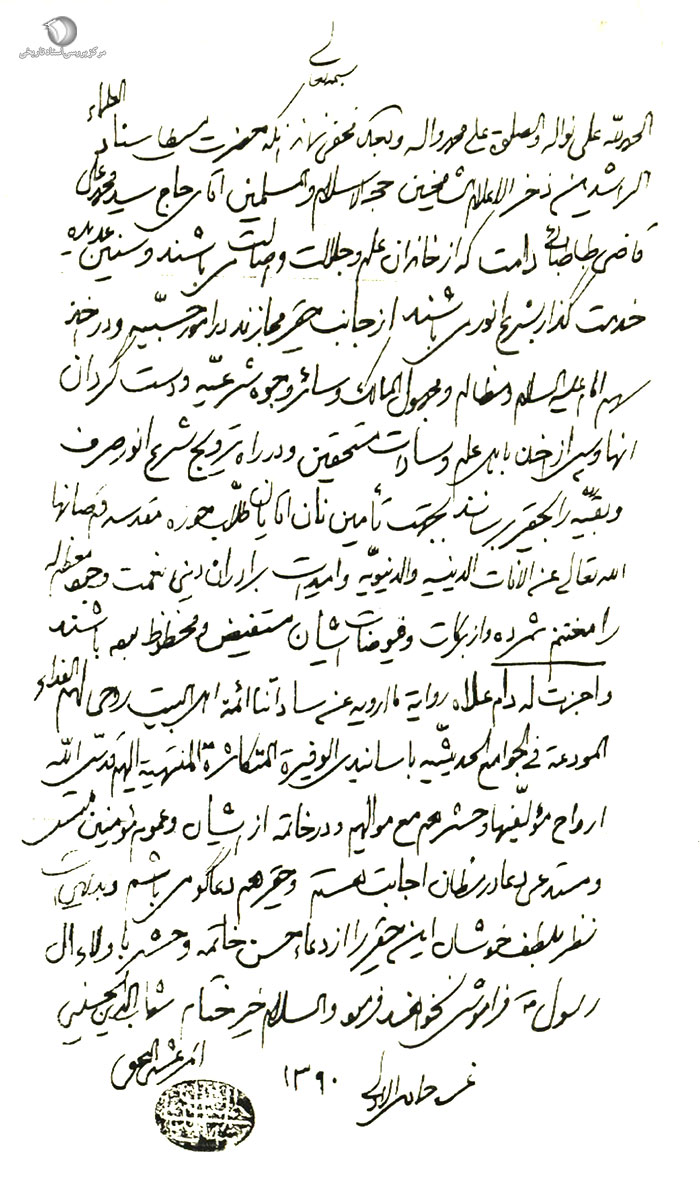 مرکز بررسی اسناد تاریخی
بسمه تعالی
الحمد لله علی نواله والصلوة علی محمد وآله وبعد مخفی نماند اینکه حضرت مستطاب سناد العلماء
الراشدین ذخر الاعلام الشامخین حجة الاسلام والمسلمین آقای حاج سید محمد علی
قاضی طباطبائی دامت که از خاندان علم وجلالت واصالت می باشند وسنین عدیده
خدمت گذار بشرع انور می باشند از جانب حقیر مجازند در امور حسبیّه ودر اخذ
سهم امام علیه السلام ومظالم ومجهول المالک وسائر وجوه شرعیّه ودست گردان
آنها وپس از اخذ باهل علم وسادات مستحقین ودر راه ترویج شرع انور صرف
وبقیّه را بحقیر برسانند بجهت تأمین نان آقایان طلّاب حوزه مقدسه قم صانها
الله تعالی عن الآفات الدینیه والدنیویّه وامید است برادران دینی نعمت وجود معظم له
را مغتنم شمرده واز برکات وفیوضات ایشان مستفیض ومحظوظ بوده باشند
واجزت له دام علاه روایة ما ارویه عن ساداتنا ائمة اهل البیت روحی لهم الفداء
المودعة فی الجوامع الحدیثیّه باسانیدی الوفیرة المتکاثرة المنتهیة الیهم قدّس الله
ارواح مؤلّفیها وحشرهم مع موالیهم ودر خاتمه از ایشان وعموم مؤمنین ملتمس
ومستدعی دعا در مظان اجابت هستم وحقیر هم دعاگو می باشم
نظر بلطف خودشان این حقیر را از دعاء حسن خاتمه وحشر با ولاء آل
رسول ص فراموش نخواهند فرمود والسلام خیر ختام شهاب الدین الحسینی
المرعشی النجفی
غرّه جمادی الاولی ۱۳۹۰